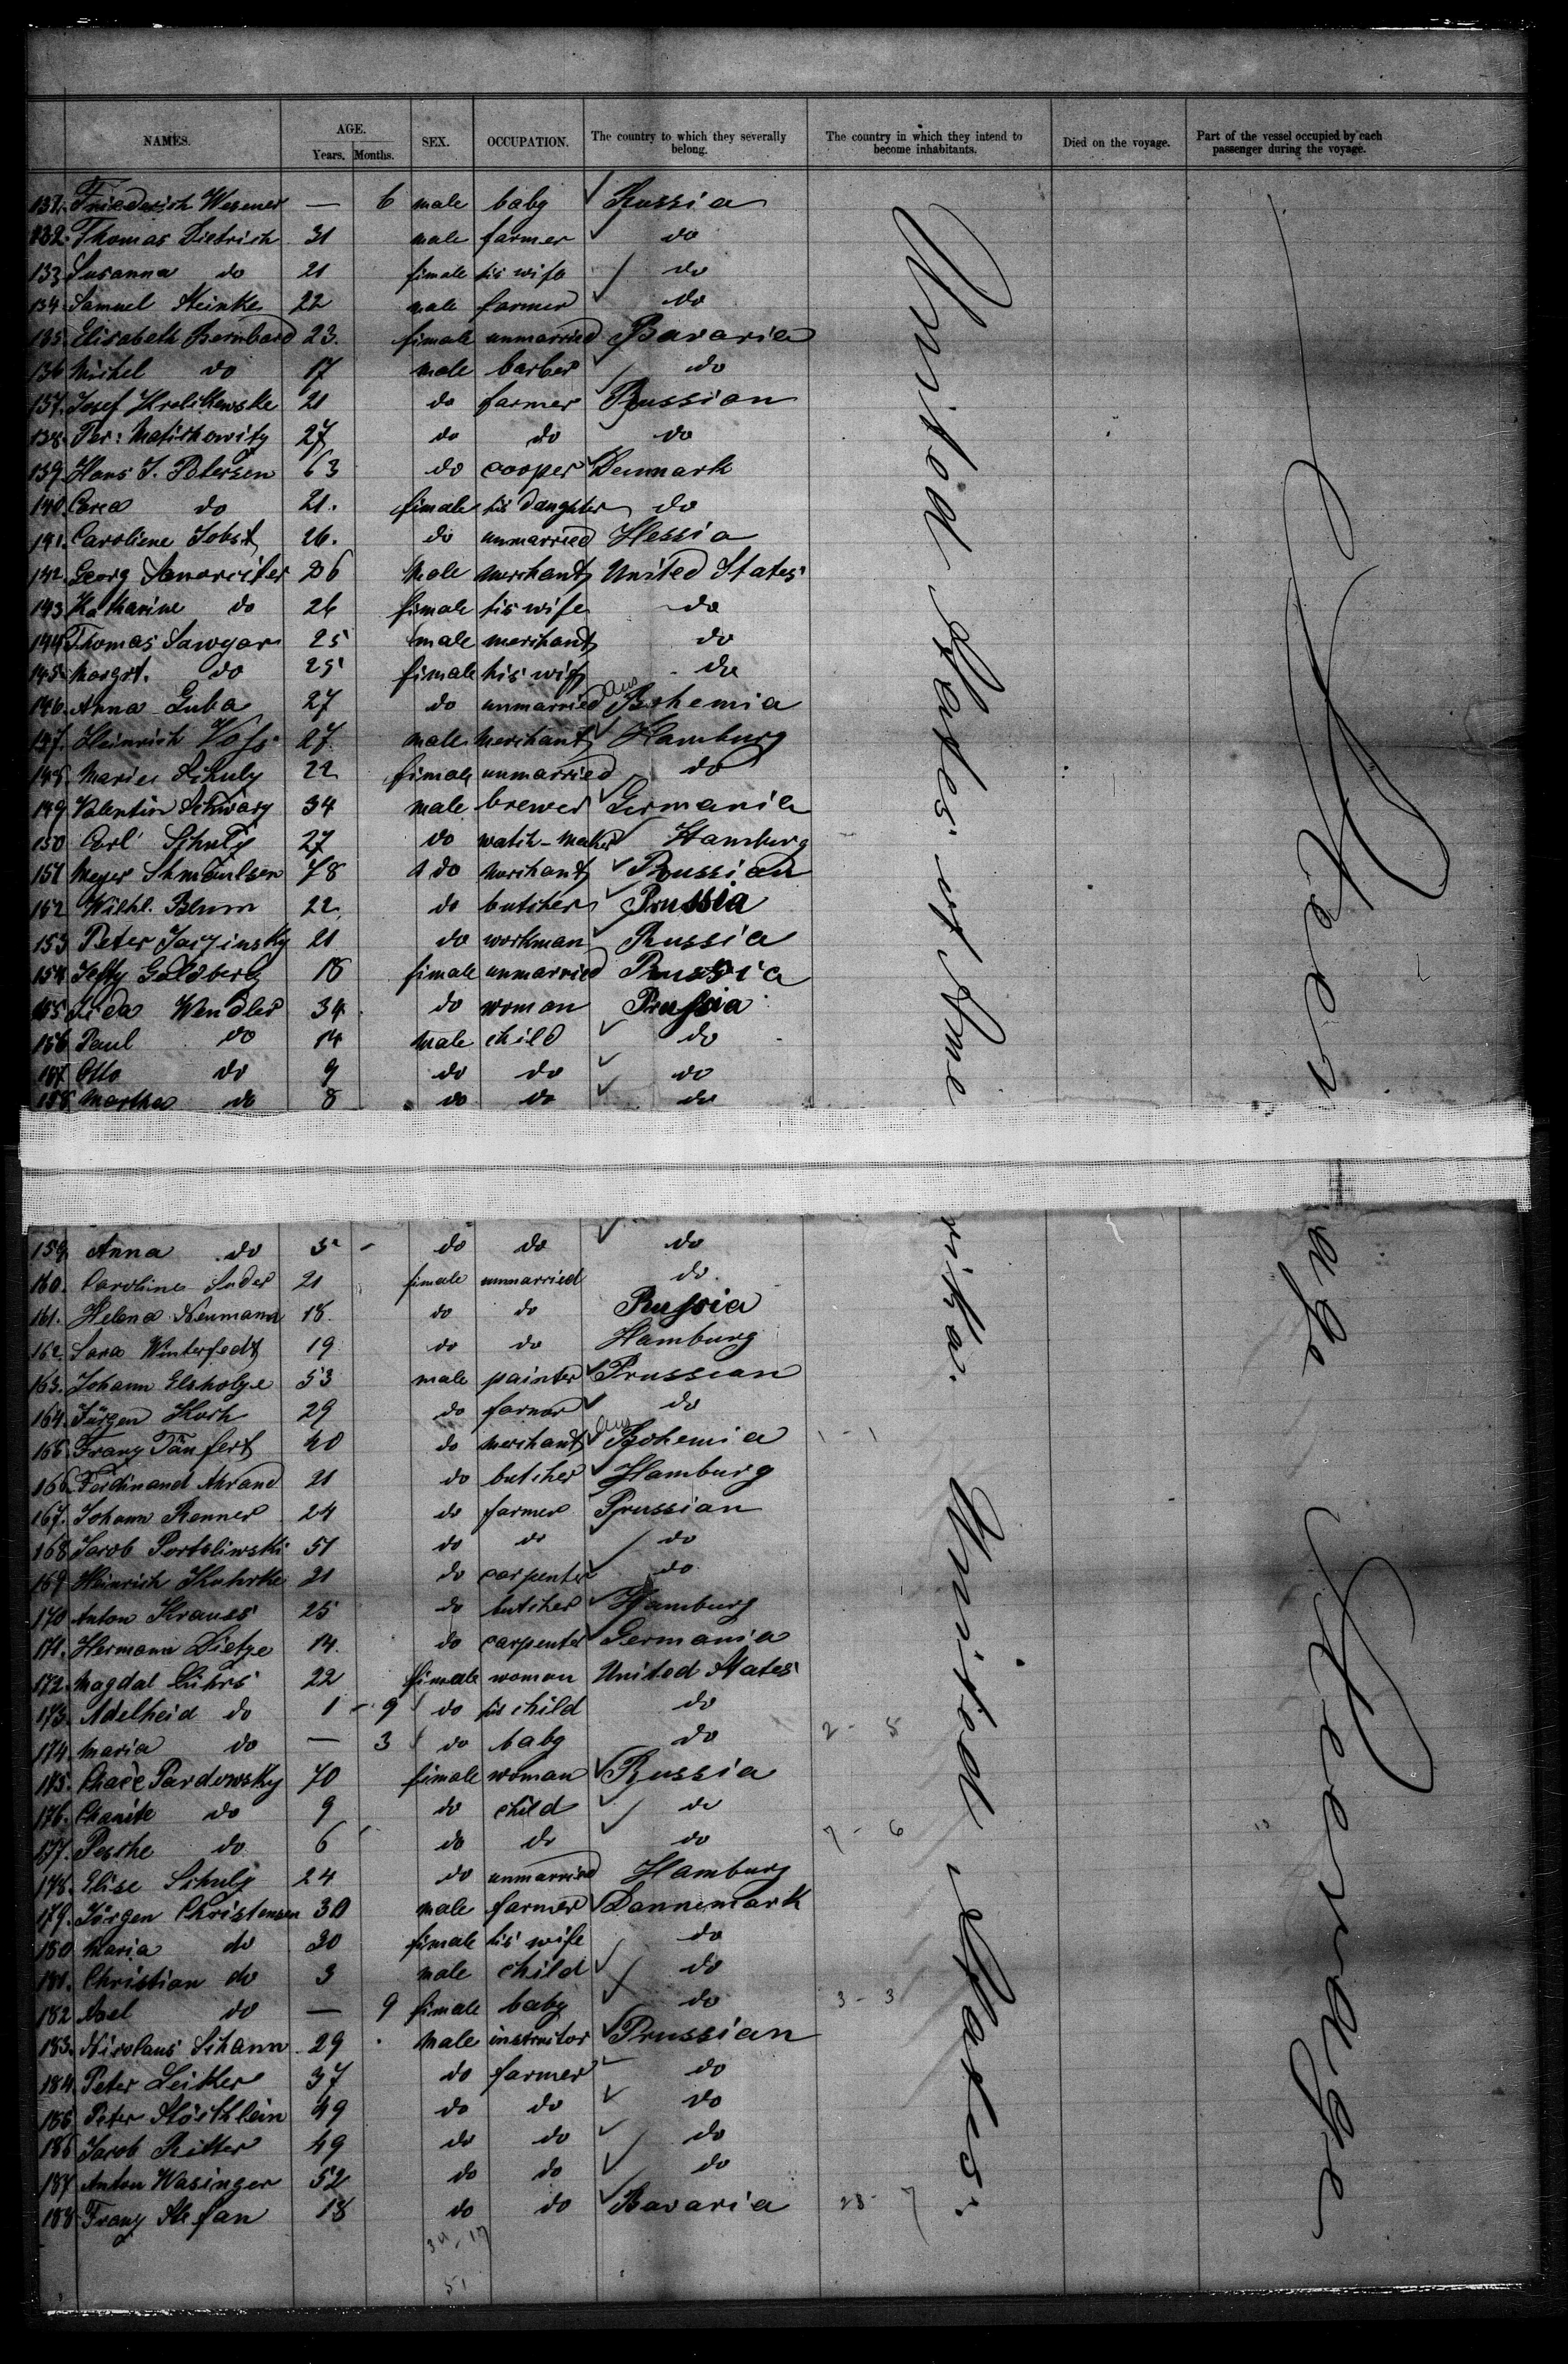 NAMES. AGE. SEX. OCCUPATION. The country to which they severally belong. The country in which they intend to become inhabitants. Died on the voyage. Part of the vessel occupied by each passenger during the voyage.
Years. Months.
131. Friederich Wesener — 6 male baby Russia
132. Thomas Dietrich 31 male farmer do
133 Susanna do 21 fimale his wife do
134. Samuel Heinke 22 male farmer do
135. Elisabeth Bernhard 23. fimale unmarried Bavaria
136 Michel do 17 male barber do
137. Josef 21 do farmer Prussian
138. 27 do do do
139. Hans J. Petersen 63 do cooper Denmark
140. do 21. fimale his daughter do
141. Caroliene Jobst 26. do unmarried Hessia
142. Georg 26 Male merchant United States
143 Katharine do 26 fimale his wife do
144 Thomas Sawyer 25 male merchant do
145. Margrt. do 25 fimale his wife do
146. Anna Guba 27 do unmarried Aus Bohemia
147. Heinrich Voss 27. male merchant Hamburg
148. Maries Schulz 22 fimale unmarried do
149 Valentin Schwarz 34 male brewer Germania
150 Carl Schulz 27 do watch-maker Hamburg
151 Meyer 78 do merchant Prussian
152 Wilhl. Blum 22. do butcher Prussia
153 Peter 21 do workman Russia
154 Goldberg 18 fimale unmarried Prussia
155. Wendler 34. do woman Prussia
156 Paul do 14 male child do
157 Otto do 9 do do do
158 Martha do 8 do do do
159. Anna do 5 - do do do
160. Caroline Suder 21 fimale unmarried do
161. Helena Neumann 18. do do Prussia
162. Sara Winterfedt 19 do do Hamburg
163. Johann Elsholze 53 male painter Prussian
164. Jürgen Koch 29 do farmer do
165. Franz Tänfert 40 do merchant Aus Bohemia 1 - 1
166. Ferdinand Ahrand 21 do butcher Hamburg
167. Johann Renner 24 do farmer Prussian
168 Jacob 51 do do do
169 Heinrich 21 do carpenter do
170 Anton Krauss 25 do butcher Hamburg
171. Hermann Dietze 14. do carpenter Germania
172. Magdal Lührs 22 fimale woman United States
173. Adelheid do 1 - 9 do his child do
174. Maria do — 3 do baby do 2 - 5
175. Pardowsky 70 fimale woman Russia
176. do 9 do child do
177. Peshe do 6 do do do 7 - 6
178. Elise Schulz 24 do unmarried Hamburg
179. Jörgen Christensen 30 male farmer Dannemark
180 Maria do 30 fimale his wife do
181. Christian do 3 male child do
182 do — 9 fimale baby do 3 - 3
183. Nicolaus Schann 29 Male instructor Prussian
184. Peter Leiker 37 do farmer do
185 Peter Stöcklein 49 do do do
186 Jacob Ritter 49 do do do
187 Anton Wasinger 52 do do do
188. Franz Stefan 18 do do Bavaria 28 - 7
34, 17
51
United States of Amerika.
United States
Steerage